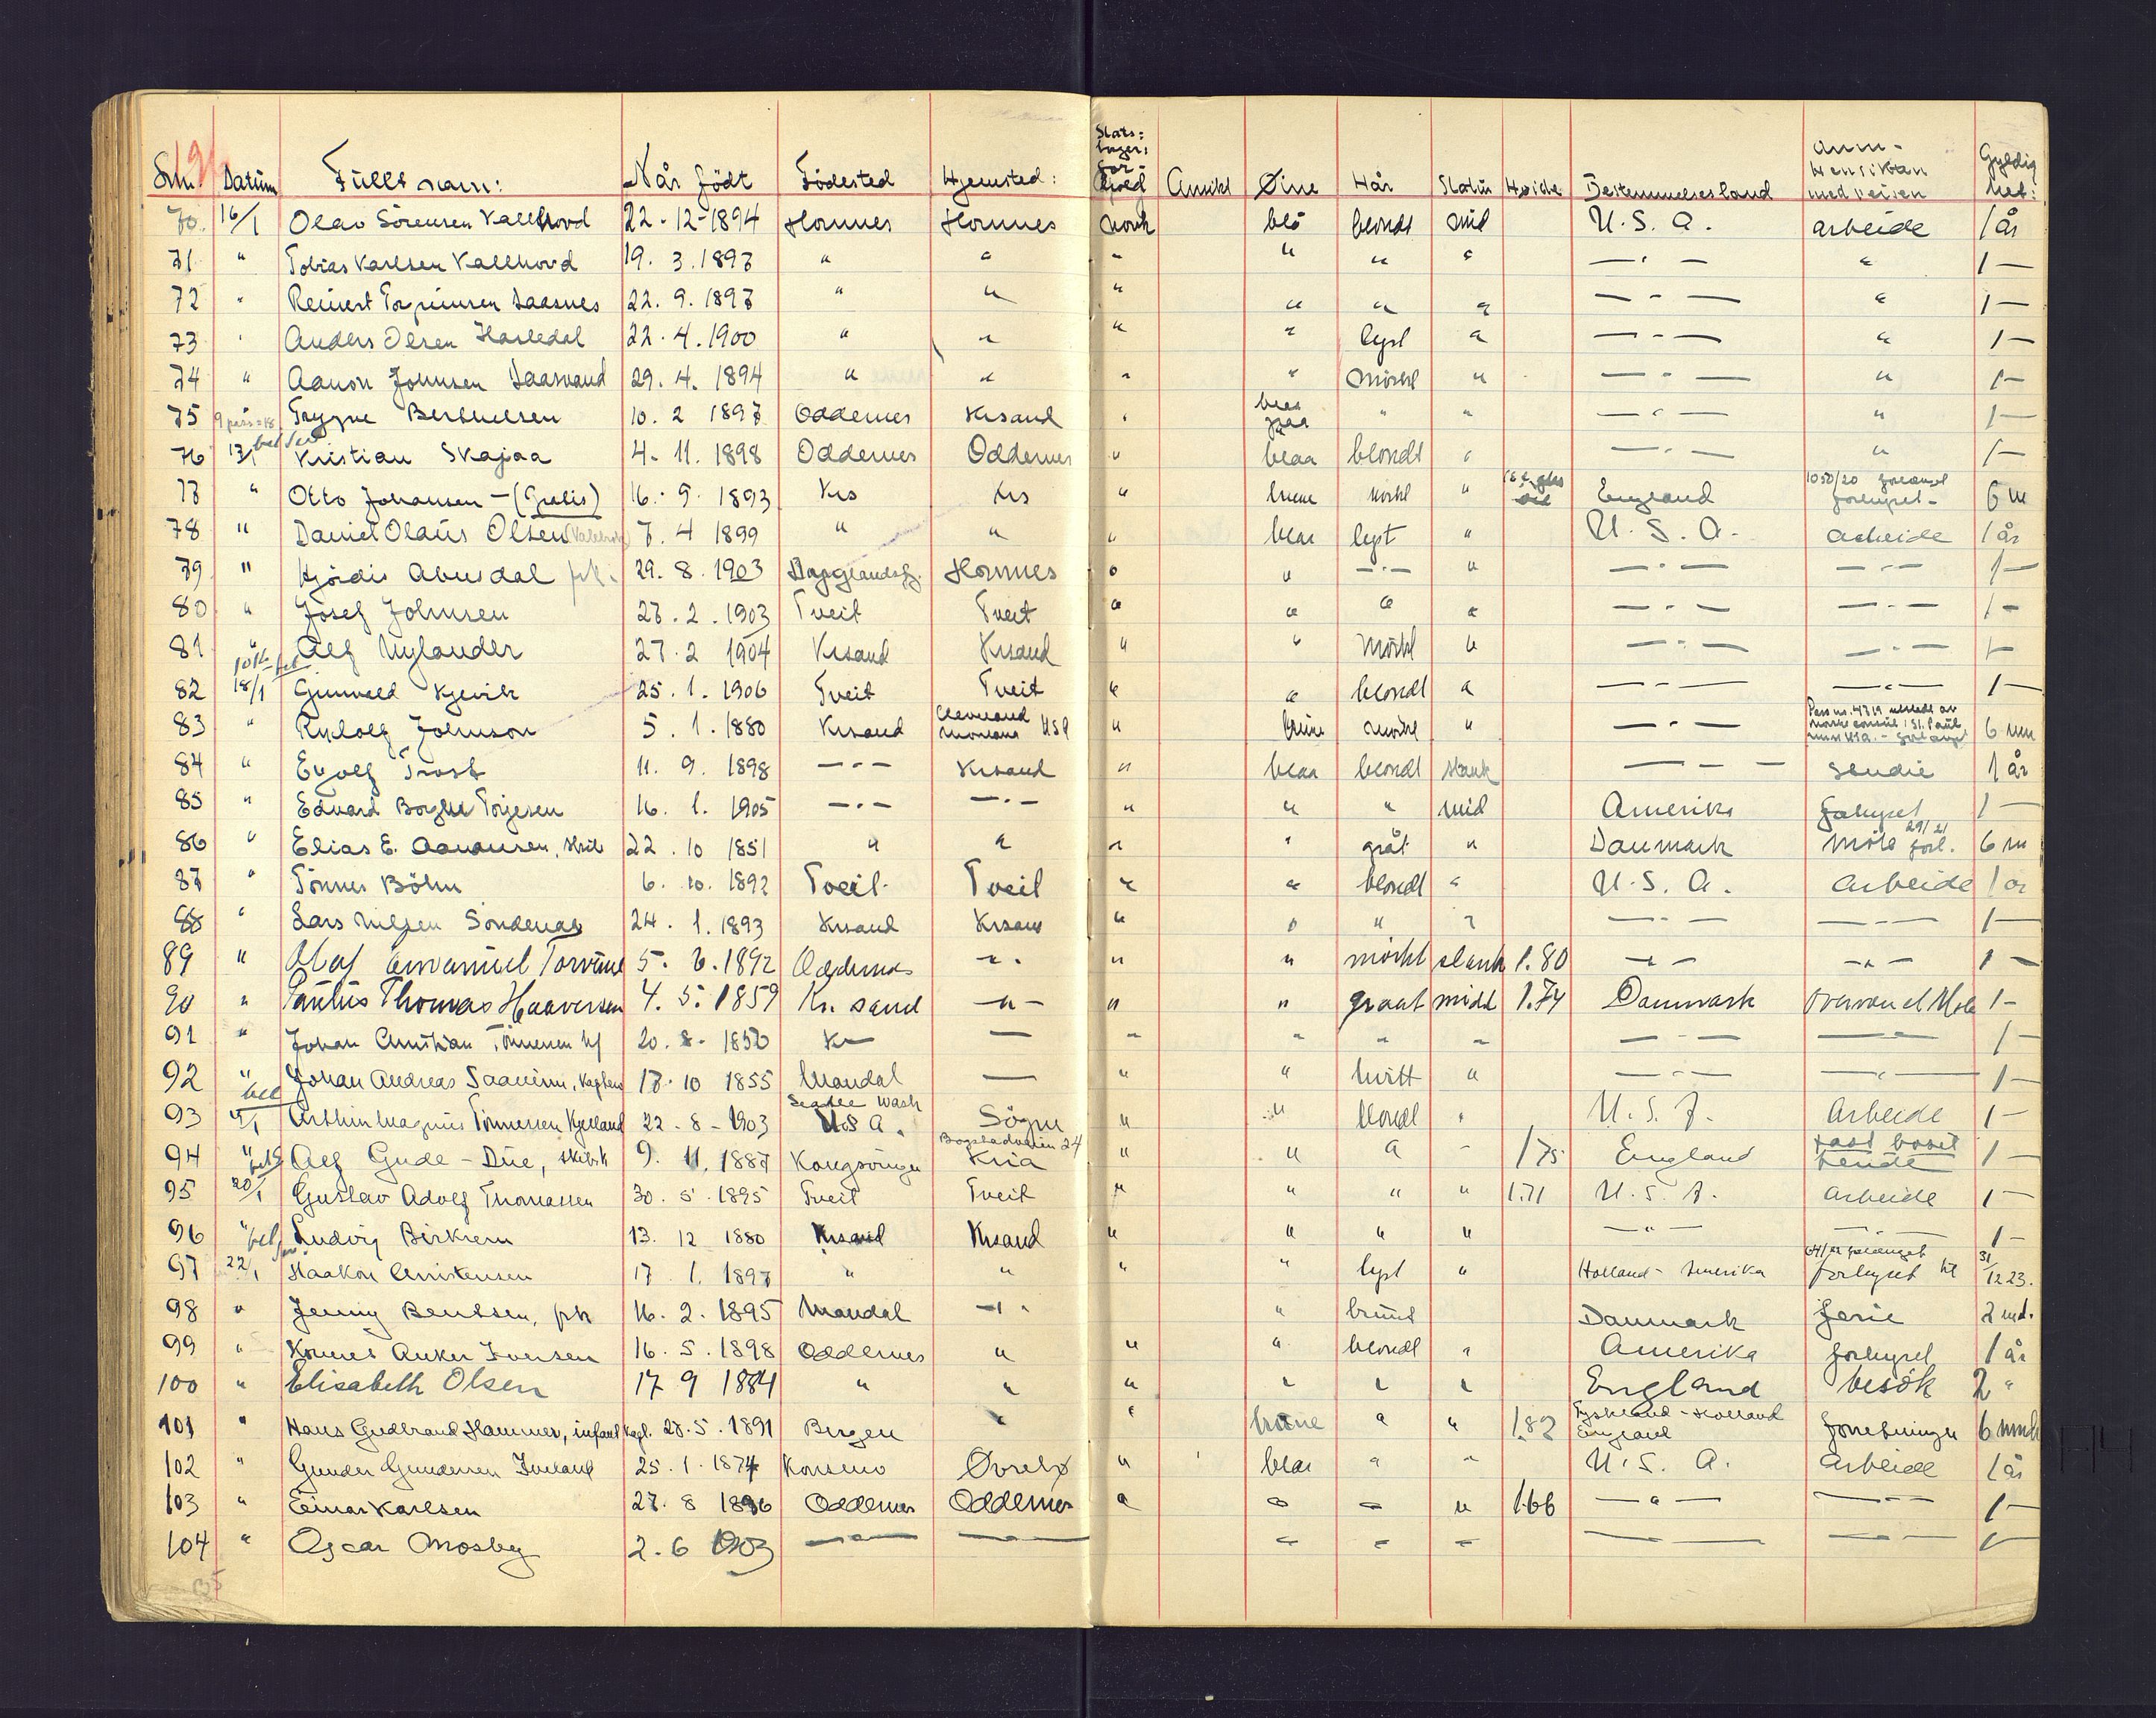 Datum Fullt navn: Når födt Födested Hjemsted: Øine Hår Høide Bestemmelsesland Hensikten med reisen Gyldig het:
70. 16/1 Olav Sörensen 22-12-1894 Hornnes Hornnes norsk blå blondt mid U.S.A. arbeide 1 år
71 " Tobias Karlsen 19. 3. 1897 " " " " " " —"— " 1 —
72 " Reinert 22. 9. 1897 " " " " " " —"— " 1 —
73 " Anders Olsen 22. 4. 1900 " " " " lyst " —"— " 1 —
74 " Aanon Johnsen 29. 4. 1894 " " " " mörkt " —"— " 1 —
75 Trygve Berthelsen 10. 2 1897 Oddernes Krsand " blaa graa " " —"— " 1 —
76 17/1 Kristian Skajaa 4. 11. 1898 Oddernes Oddernes " blaa blondt " —"— " 1 —
77 " Otto Johansen — (Gratis) 16. 9. 1893 Krs Krs " brune mörkt " England forhyret - 6 m
78 " Daniel Olaus Olsen 7. 4 1899 " " " blaa lyst " U.S.A. arbeide 1 år
79 " Hjördis Abusdal frk. 29. 8. 1903 Hornnes " " —"— " —"— —"— 1 —
80 " Josef Johnsen 27. 2. 1903 Tveit Tveit " " " " —"— —"— 1 —
81 " Alf Nylander 27. 2 1904 Krsand Krsand " " Mörkt " —"— —"— 1 —
82 18/1 Gunvald Kjevik 25. 1. 1906 Tveit Tveit " " blondt " —"— —"— 1 —
83 " Rudolf Johnson 5. 1. 1880 Krsand Montana USA " brune mörkt " —"— Pass nr. 4719 utstedt av norske consul i St. Paul 6 mm
84 " Eyolf Trost 11. 9. 1898 —"— Krsand " blaa blondt slank —"— studie 1 år
85 " Edvard Torjesen 16. 1. 1905 —"— —"— " " " mid Amerika forhyret 1 —
86 " Elias E. Aanonsen, 22. 10 1851 " " " " gråt " Danmark möte 6 m
87 " Tönnes Böhn 6. 10. 1892 Tveit Tveit " " blondt " U.S.A. arbeide 1 år
88 " Lars Nilsen 24. 1. 1893 Krsand Krsand " " " " —"— —"— 1 —
89 " Olaf Emanuel 5. 6. 1892 Oddernes —"— " " mörkt slank 1.80 —"— —"— 1 —
90 " Paulus Thomas Haaversen 4. 5. 1859 Kr. sand —"— " " graat midd 1.74 Danmark 1 —
91 " Johan Christian Tönnesen 20. 8. Kr — — " " " " —"— — 1 —
92 " Johan Andreas 17. 10 1855 Mandal — " " hvitt " —"— —"— 1 —
93 19/1 Arthur Magnus Tönnessen Kjelland 22 - 8 - 1903 Seattle Wash U.S.A. Sögne " " blondt " U.S.A. Arbeide 1 —
94 " Alf Gude - Due, 9. 11. 1887 Kongsvinger Bogstadveien 24 Kria " " " " 1.75 England fast bosittende 1 —
95 20/1 Gustav Adolf Thomassen 30. 5. 1895 Tveit Tveit " " " " 1.71 U.S.A. Arbeide 1 —
96 " Ludvig Birkrem 13. 12 1880 Krsand Krsand " " " " —"— —"— 1 —
97 22/1 Haakon Christensen 17 1. 1897 " " " " lyst " Holland - Amerika forhyret til 31/12 23.
98 " Jenny Bentsen, frk 16. 2. 1895 Mandal —"— " brunt Danmark ferie 2 md.
99 " Anker Iversen 16. 5. 1898 Oddernes " " " blondt " Amerika forhyret 1 år
100 " Elisabeth Olsen 17 9 1884 " " " " " " England besök 2 "
101 " Hans Gudbrand Hammer, infant kapt. 27. 5. 1891 Bergen " " brune " " 1.82 Tyskland - Holland England forretninger 6 mnd
102 " Gunder Gundersen 25. 1. 1874 Øvrebø " blaa " " U.S.A. Arbeide 1 år
103 " Einar Karlsen 27. 8 1896 Oddernes Oddernes " " " " 1.66 —"— —"— 1 —
104 " Oscar Mosby 2. 6 1903 —"— —"— " " " —"— —"— 1 —